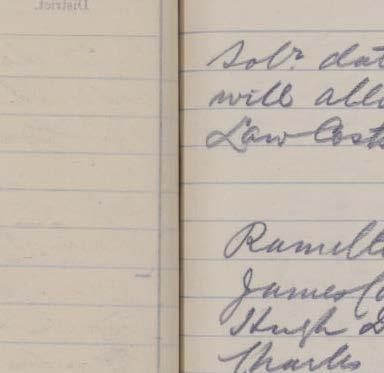 District.
Solr dat
will allo
Law Costs
Ramello
James Co
Hugh D
Charles